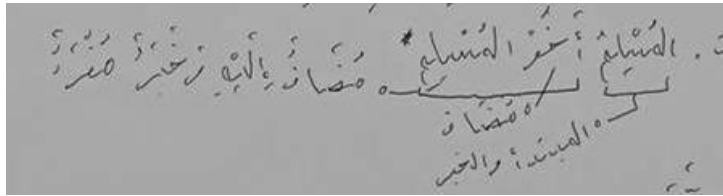 المُسْلِمُ أَخُوْ المُسْلِمِ * مُضَافٌ إِلَيْهِ وَخَبَرٌ مُفْرَدٌ
مُضَاف
المبتدأ والخبر